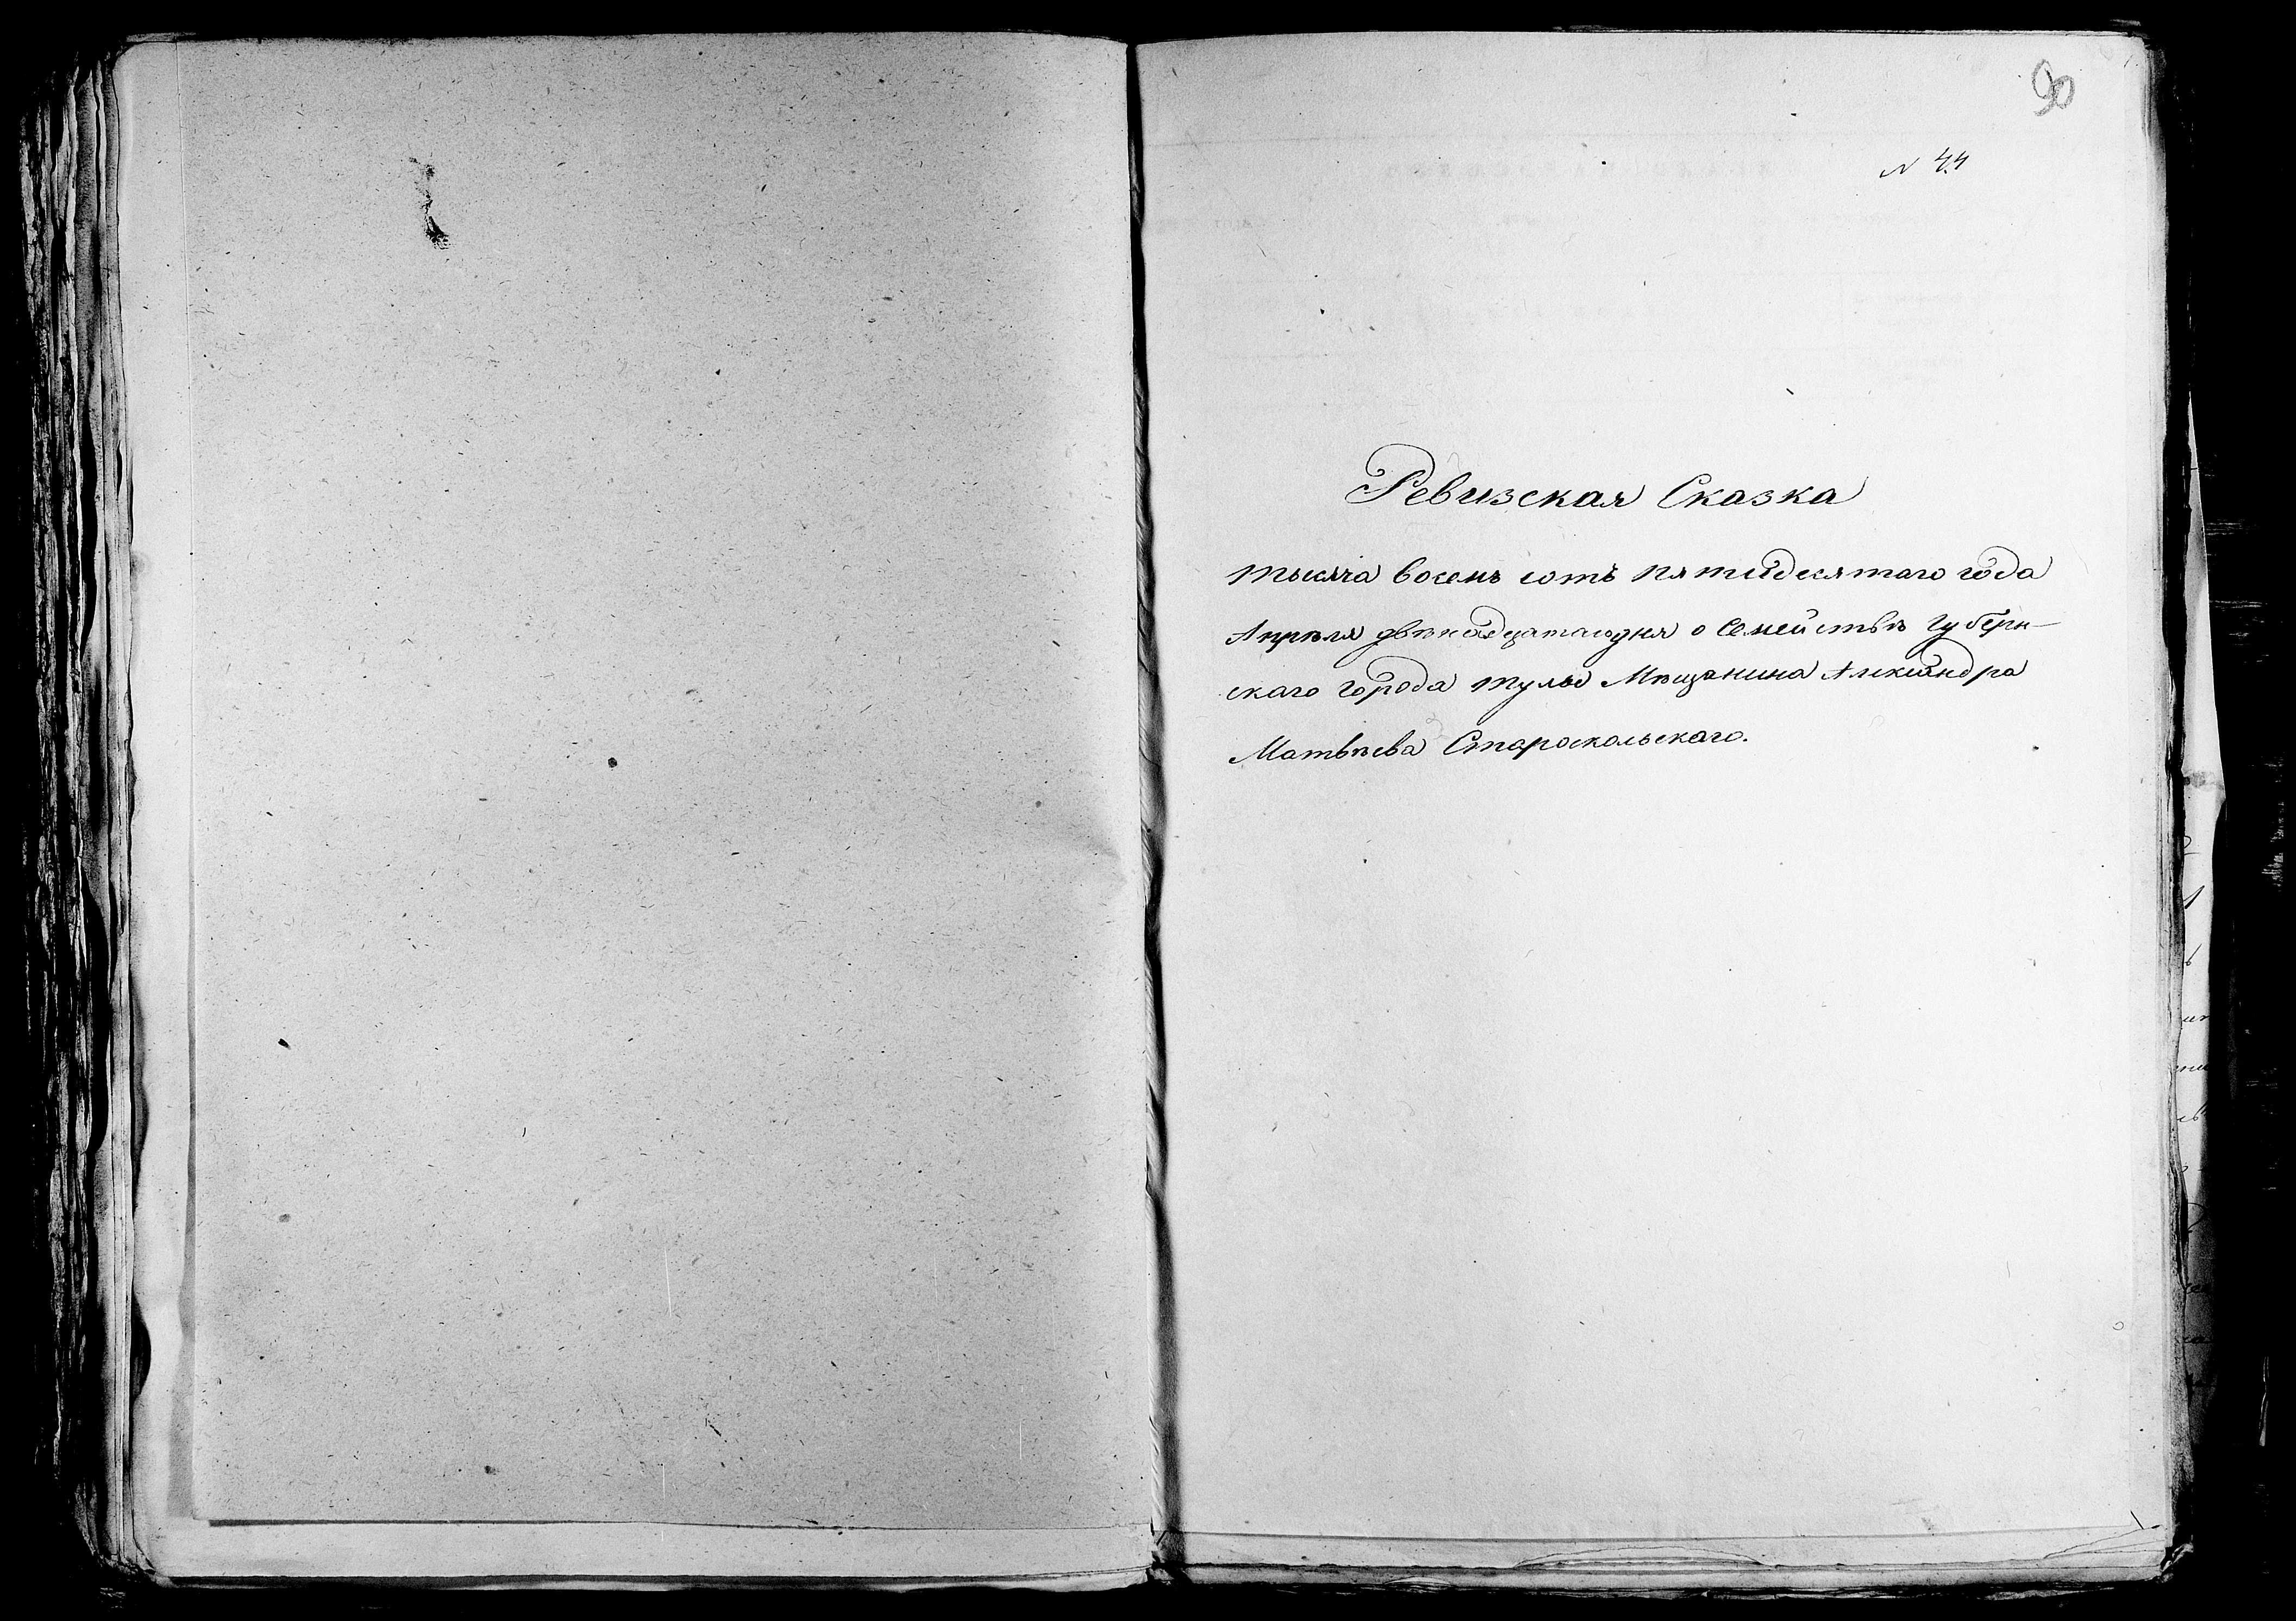 90
N 44
Ревизская Сказка
тысяча восемь сотъ пятидесятаго года
Апрѣля двѣнадцатаго дня о семействѣ Губерн-
скаго города Тулы Мѣщанина Александра
Матвѣева Староскольскаго.